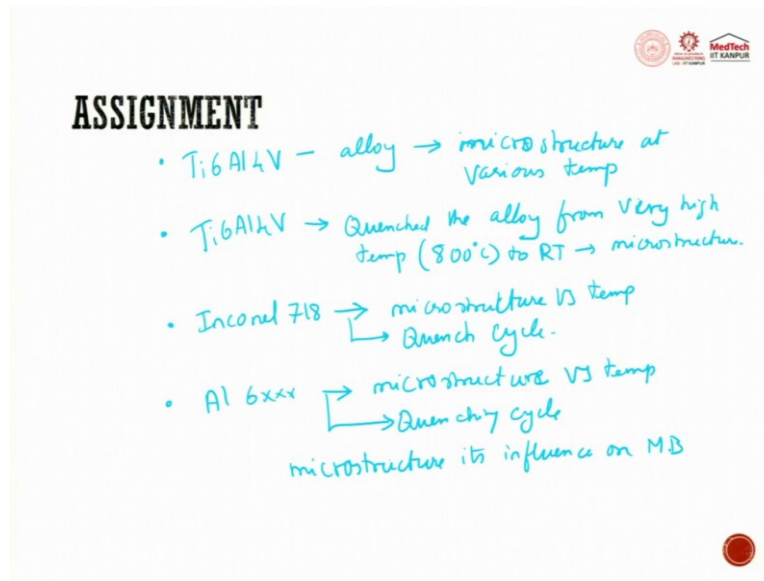 MedTech
IIT KANPUR
ASSIGNMENT
• Ti6Al4V - alloy → microstructure at
various temp
• Ti6Al4V → Quenched the alloy from very high
temp (800°C) to RT → microstructure.
• Inconel 718 → microstructure Vs temp
→ Quench Cycle.
• Al 6xxx → microstructure Vs temp
→ Quenching cycle
microstructure its influence on MB